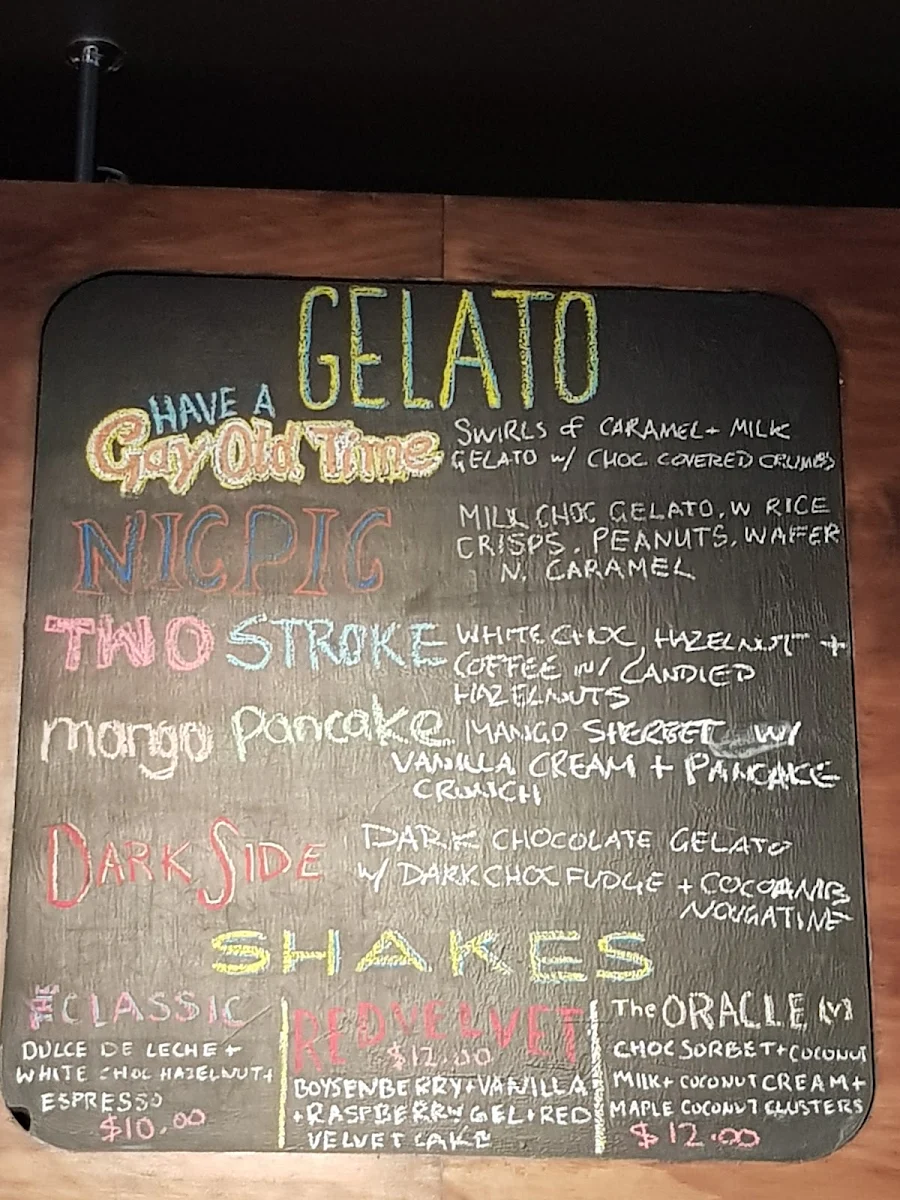 GELATO
HAVE A
Gay Old Time
SWIRLS of CARAMEL + MILK
GELATO w/ CHOC COVERED CRUMBS
NICPIC
MILK CHOC GELATO, W RICE
CRISPS, PEANUTS, WAFER
N. CARAMEL
TWO STROKE
WHITE CHOC, HAZELNUT +
COFFEE W/ CANDIED
HAZELNUTS
mango pancake
MANGO SHERBET W/
VANILLA CREAM + PANCAKE
CRUNCH
DARK SIDE
DARK CHOCOLATE GELATO
W/ DARK CHOC FUDGE + COCOANIB
NOUGATINE
SHAKES
THE CLASSIC
DULCE DE LECHE +
WHITE CHOC HAZELNUT +
ESPRESSO
$10.00
RED VELVET
$12.00
BOYSENBERRY + VANILLA
+ RASPBERRY GEL + RED
VELVET CAKE
The ORACLE (V)
CHOC SORBET + COCONUT
MILK + COCONUT CREAM +
MAPLE COCONUT CLUSTERS
$12.00